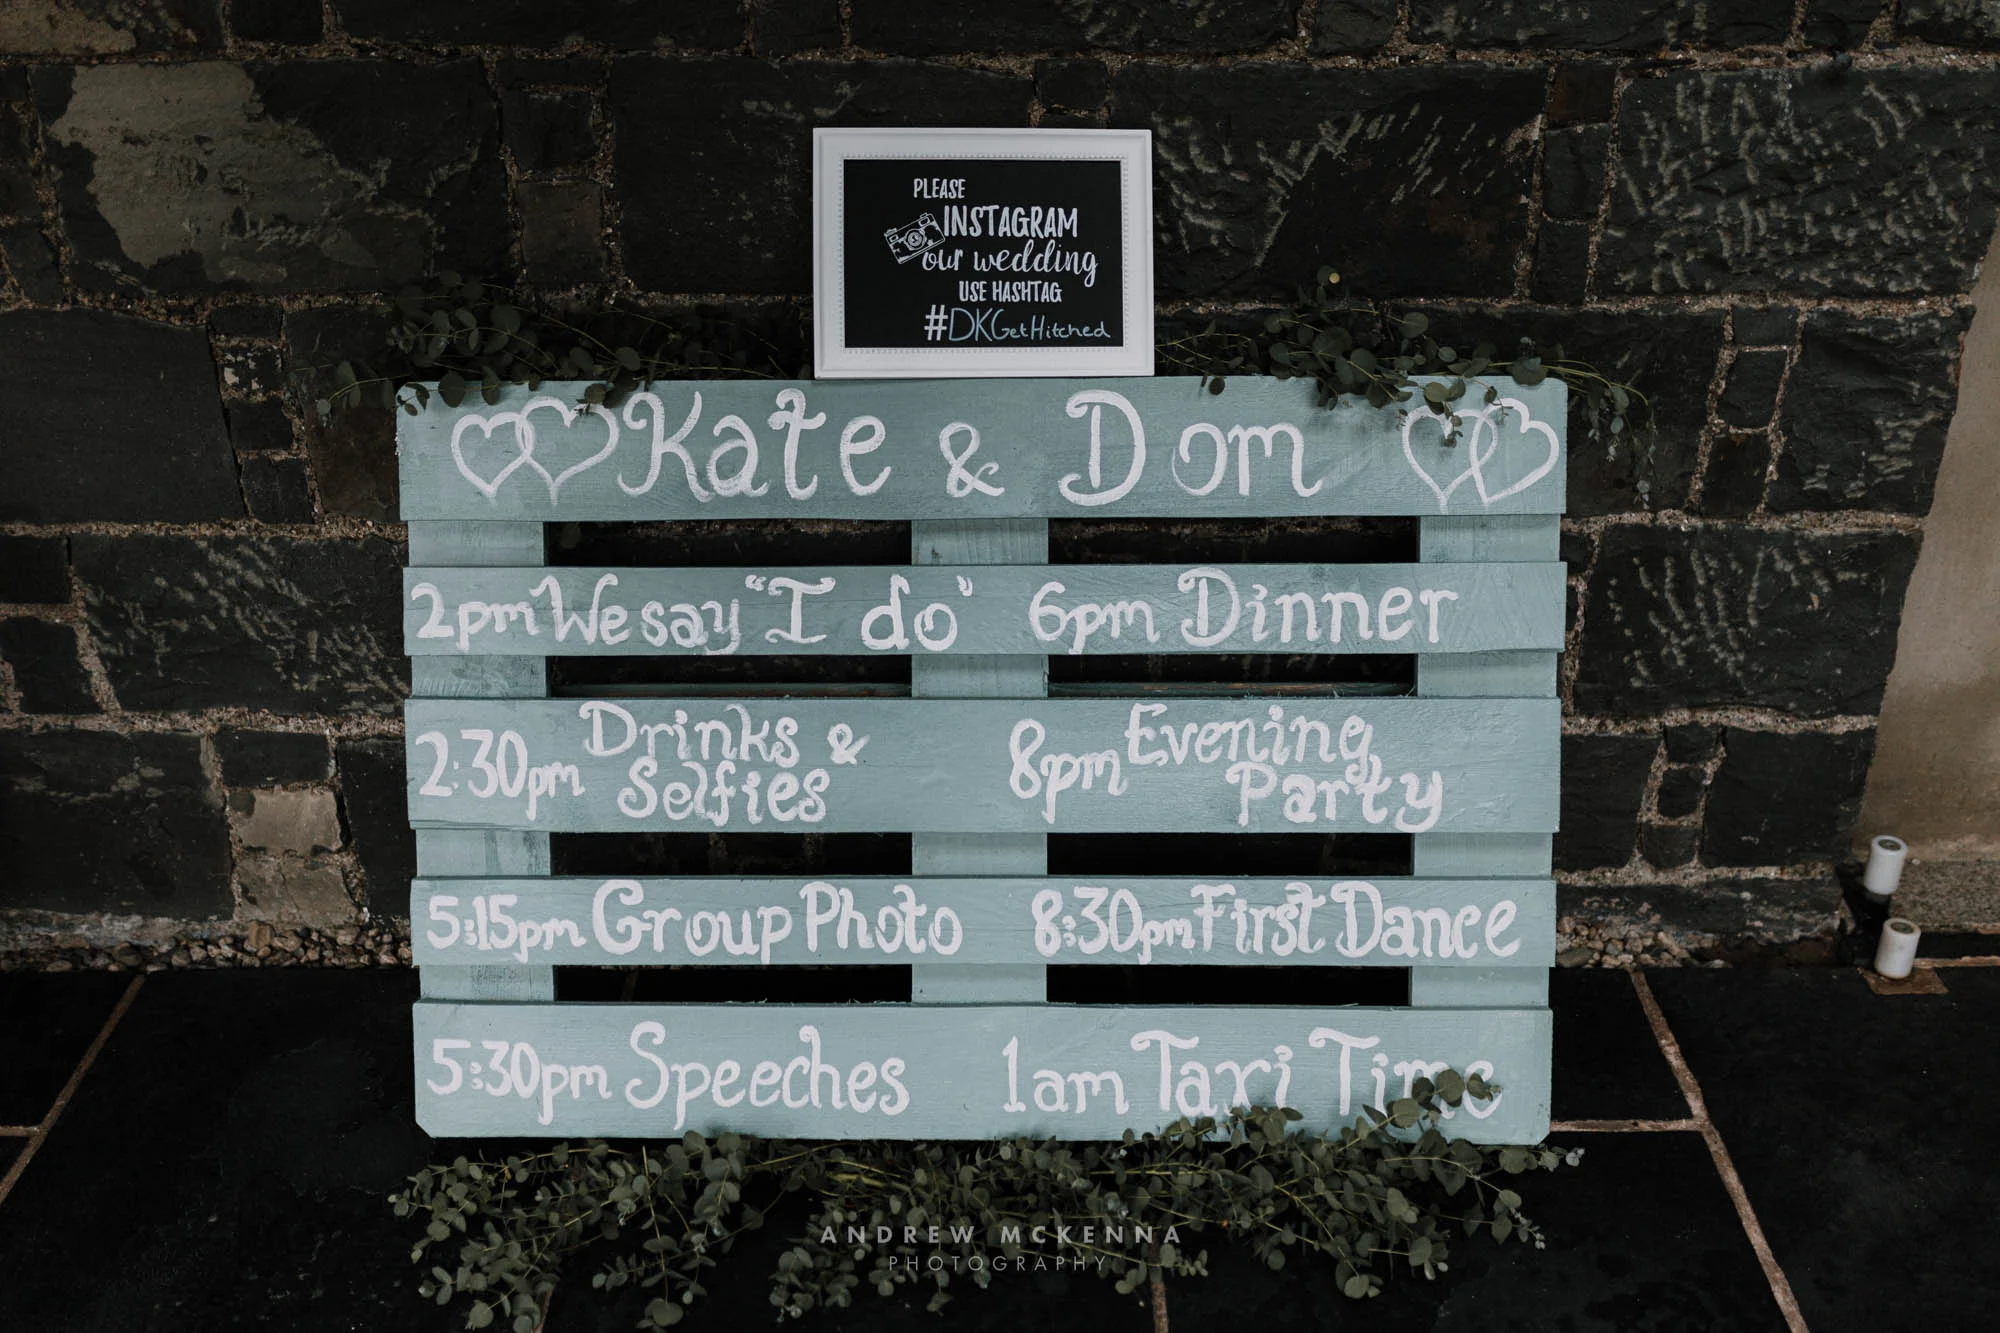 PLEASE
INSTAGRAM
our wedding
USE HASHTAG
#DKGetHitched
Kate & Dom
2pm We say "I do"
2:30pm Drinks &
Selfies
5:15pm Group Photo
5:30pm Speeches
6pm Dinner
8pm Evening
Party
8:30pm First Dance
1am Taxi Time
ANDREW MCKENNA
PHOTOGRAPHY